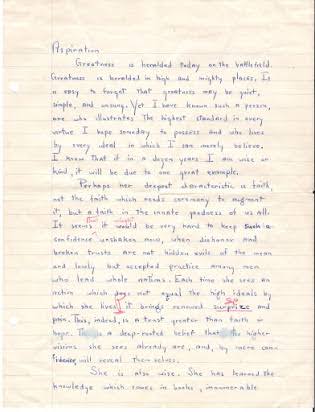 Aspiration
Greatness is heralded today on the battlefield.
Greatness is heralded in high and mighty places. Is
a easy to forget that greatness may be quiet,
simple, and unsung. Yet I have known such a person,
one who illustrates the highest standard in every
virtue I hope someday to possess and who lives
by every ideal in which I can merely believe.
I know that if in a dozen years I am wise or
kind, it will be due to one great example.
Perhaps her deepest characteristic is faith,
not the faith which needs ceremony to augment
it, but a faith in the innate goodness of us all.
It seems it would be very hard to keep such a
confidence unshaken now, when dishonor and
broken trusts are not hidden evils of the mean
and lowly but accepted practice among men
who lead whole nations. Each time she sees an
action which does not equal the high ideals by
which she lives, it brings renewed surprise and
pain. This, indeed, is a trust greater than faith or
hope. This is a deep-rooted belief that the higher
visions she sees already are, and, by mere con-
fidence, will reveal themselves.
She is also wise. She has learned the
knowledge which comes in books, innumerable